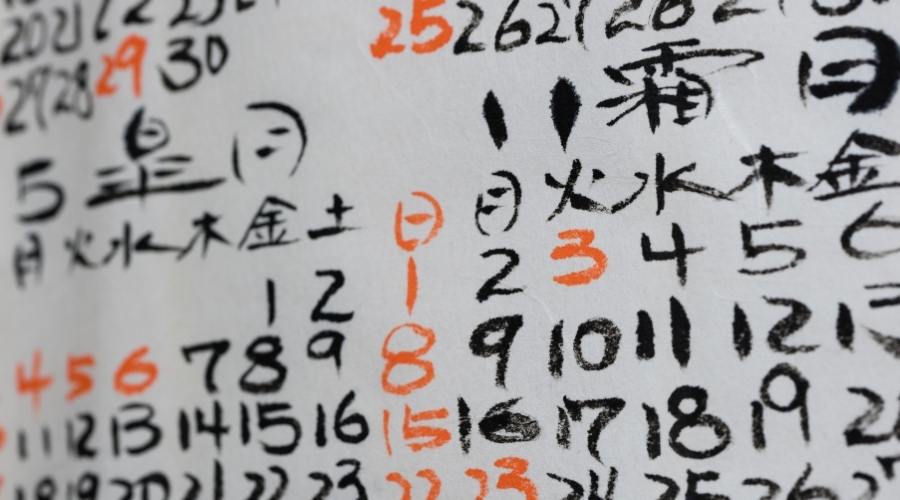 20 21 22 23
27 28 29 30
5 皐月
月 火 水 木 金 土
1 2
4 5 6 7 8 9
11 12 13 14 15 16
18 19 20 21 22 23
25 26 27 28
11 霜月
日 月 火 水 木 金
1 2 3 4 5 6
8 9 10 11 12 13
15 16 17 18 19
22 23 24 25 26 27